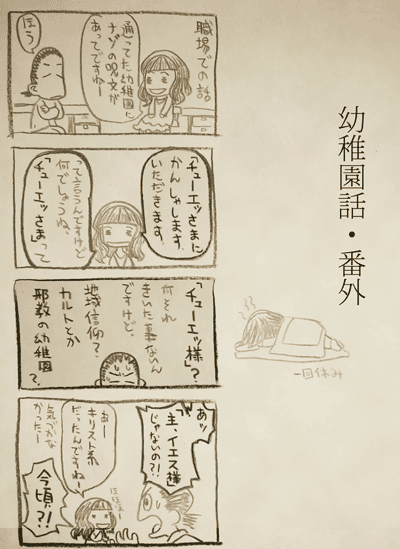 幼稚園話・番外
一回休み
職場での話
通ってた幼稚園に
ナゾの呪文が
あってですねー
ほう
「チューエッさまに
かんしゃします、
いただきます。
って言うんですけど
何でしょうね、
「チューエッさま」って
「チューエッ様」?
何それ
きいた事ないん
ですけど、
地域信仰?
カルトとか
邪教の幼稚園?
あッ
「主、イエス様」
じゃないの?!
あー
キリスト系
だったんですねー
気づかな
かったー
今頃?!